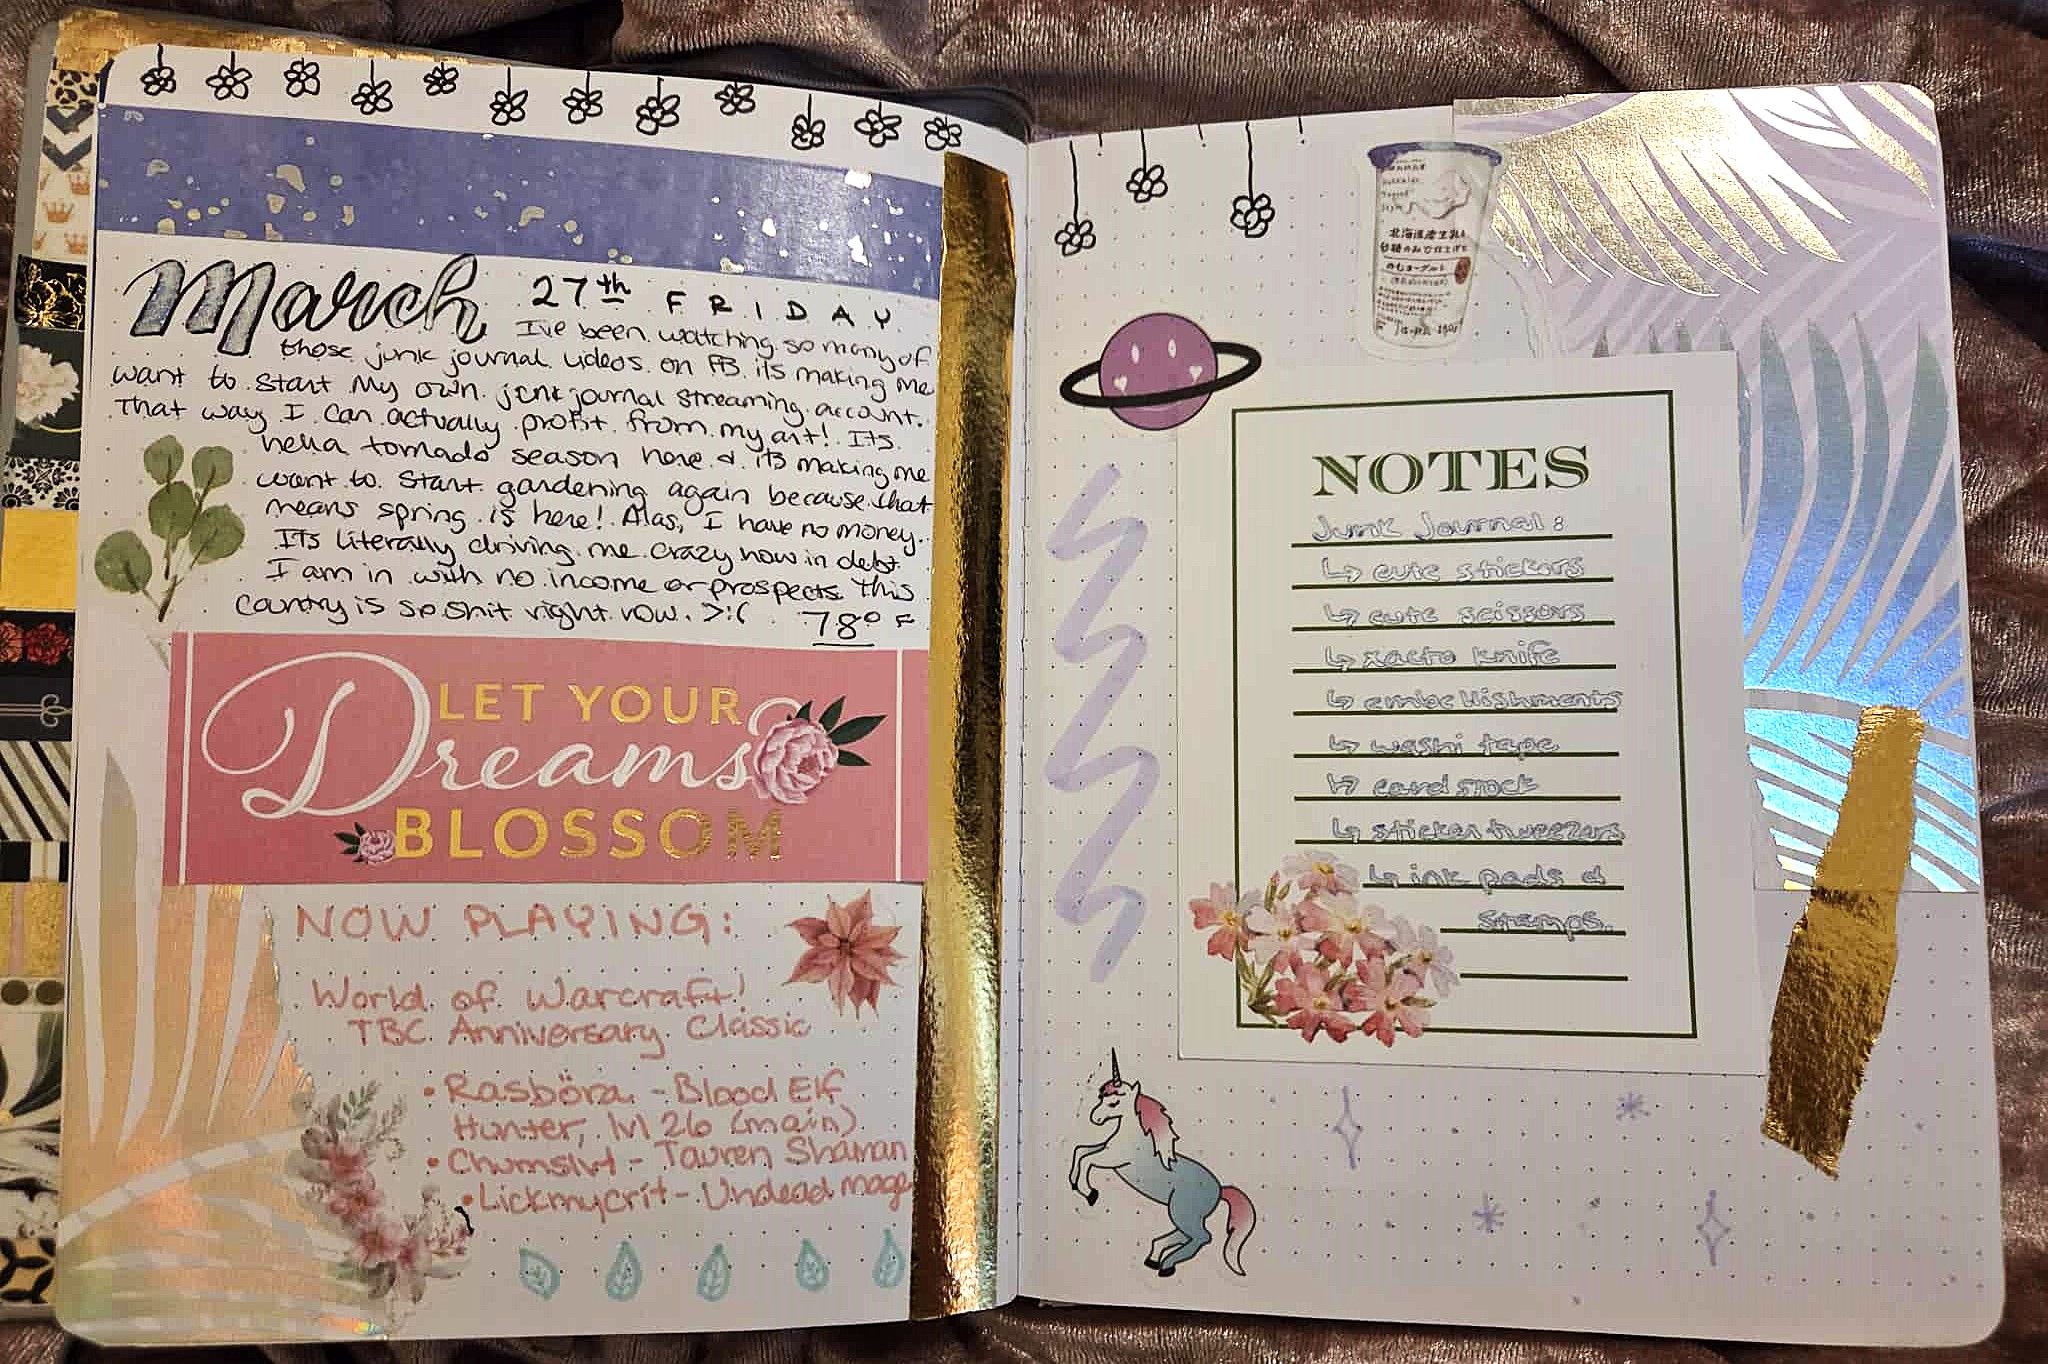 March 27th FRIDAY
I've been watching so many of
those junk journal videos on FB its making me
want to start my own junk journal streaming account.
That way I can actually profit from my art! Its
hella tornado season here & its making me
want to start gardening again because that
means spring is here! Alas, I have no money.
Its literally driving me crazy how in debt
I am in with no income or prospects. This
country is so shit right now. >:(
78° F
LET YOUR
Dreams
BLOSSOM
NOW PLAYING:
World of Warcraft!
TBC Anniversary Classic
• Rasböra - Blood Elf
Hunter, lvl 26 (main)
• Chumslut - Tauren Shaman
• Lickmycrit - Undead mage
北海道産生乳と
砂糖のみで仕上げた
のむヨーグルト
NOTES
Junk Journal:
↳ cute stickers
↳ cute scissors
↳ xacto knife
↳ embellishments
↳ washi tape
↳ cardstock
↳ sticker tweezers
↳ ink pads &
stamps.